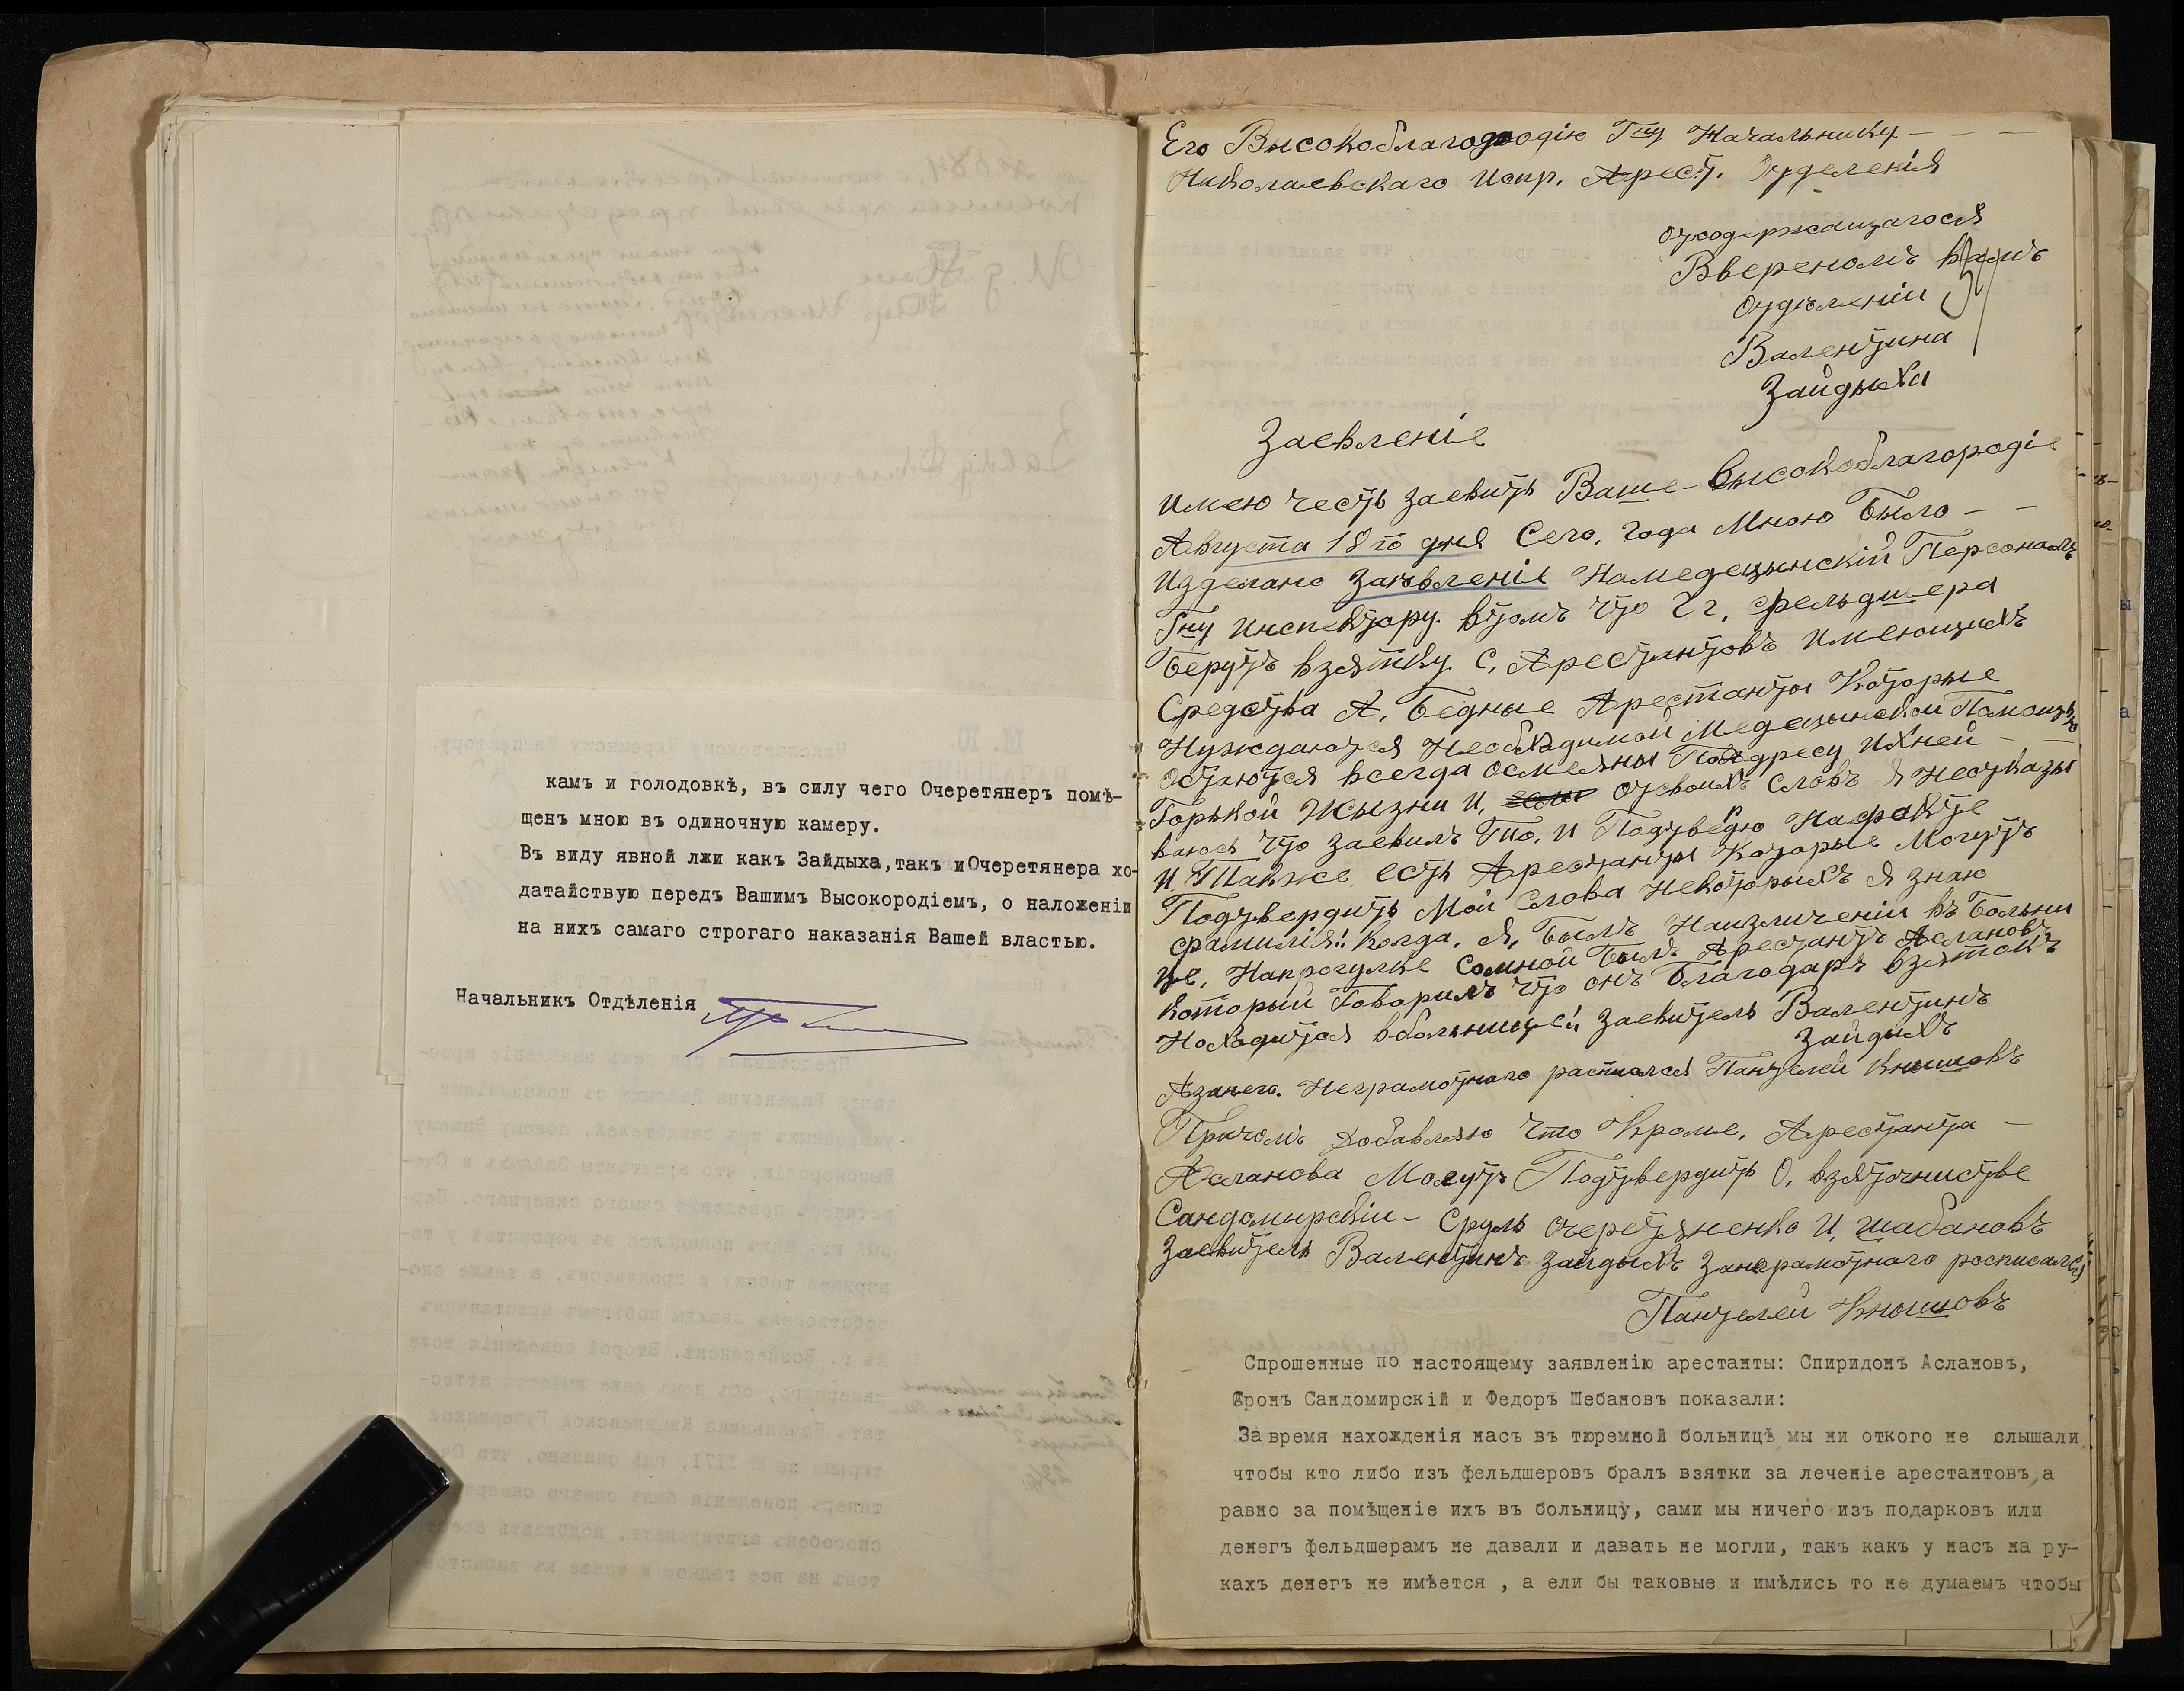 камъ и голодовкѣ, въ силу чего Очеретянеръ помѣ-
щенъ мною въ одиночную камеру.
Въ виду явной лжи какъ Зайдыха,такъ иОчеретянера хо-
датайствую передъ Вашимъ Высокородіемъ, о наложеніи
на нихъ самаго строгаго наказанія Вашей властью.
Начальникъ Отдѣленія
Его Высокоблагородію Гну Начальнику
Николаевскаго Испр. Арест. Отделенія
отсодержащагося
Ввереномъ вамъ
отдѣленіи
Валентина
Зайдыха
Заевленіе
Имею честь заевить Ваше-Высокоблагородіе
Августа 18го дня Сего, года Мною Было
Изделано Заевленіе Намедецынскій Персоналъ
Гну Инспектору. втомъ что Гг, фельдшера
Берутъ взятку С, Арестантовъ Имеющихъ
Средства А, Бедные Арестанты Которые
Нуждаются Необхдимой Медецынской Помощью
Остаются всегда осмеяны Поадресу Ихней
Горькой Жызни И, отсвоихъ Словъ я Неотказы
ваюсь что заевилъ Тто, И Подтвердю Нафакте
И Также есть Арестанты Которые Могутъ
Подтвердить Мои Слова Некоторыхъ я знаю
фамилія!! Когда, я, Былъ Наизличеніи въ Больни
це, Напрогулке Сомной Былъ Арестантъ Аслановъ
который Говорилъ что онъ Благодаря взятокъ
Находится вбольнице!! Заевитель Валентинъ
Зайдыхъ
Азанего. Неграмотнаго распиался Пантелей Кнышовъ
Причомъ добавляю что Кроме, Арестанта
Асланова Могутъ Подтвердить О, взяточнистве
Сандомирскіи- Сруль очеретяненко И, шабановъ
Заевитель Валентинъ Зайдыхъ Занеграмотнаго росписался
Пантелей Кнышовъ
Спрошенные по настоящему заявленію арестанты: Спиридонъ Аслановъ,
Фронъ Сандомирскій и Федоръ Шебановъ показали:
За время нахожденія насъ въ тюремной больницѣ мы ни откого не слышали
чтобы кто либо изъ фельдшеровъ бралъ взятки за леченіе арестантовъ,а
равно за помѣщеніе ихъ въ больницу, сами мы ничего изъ подарковъ или
денегъ фельдшерамъ не давали и давать не могли, такъ какъ у насъ на ру-
кахъ денегъ не имѣется , а ели бы таковые и имѣлись то не думаемъ чтобы